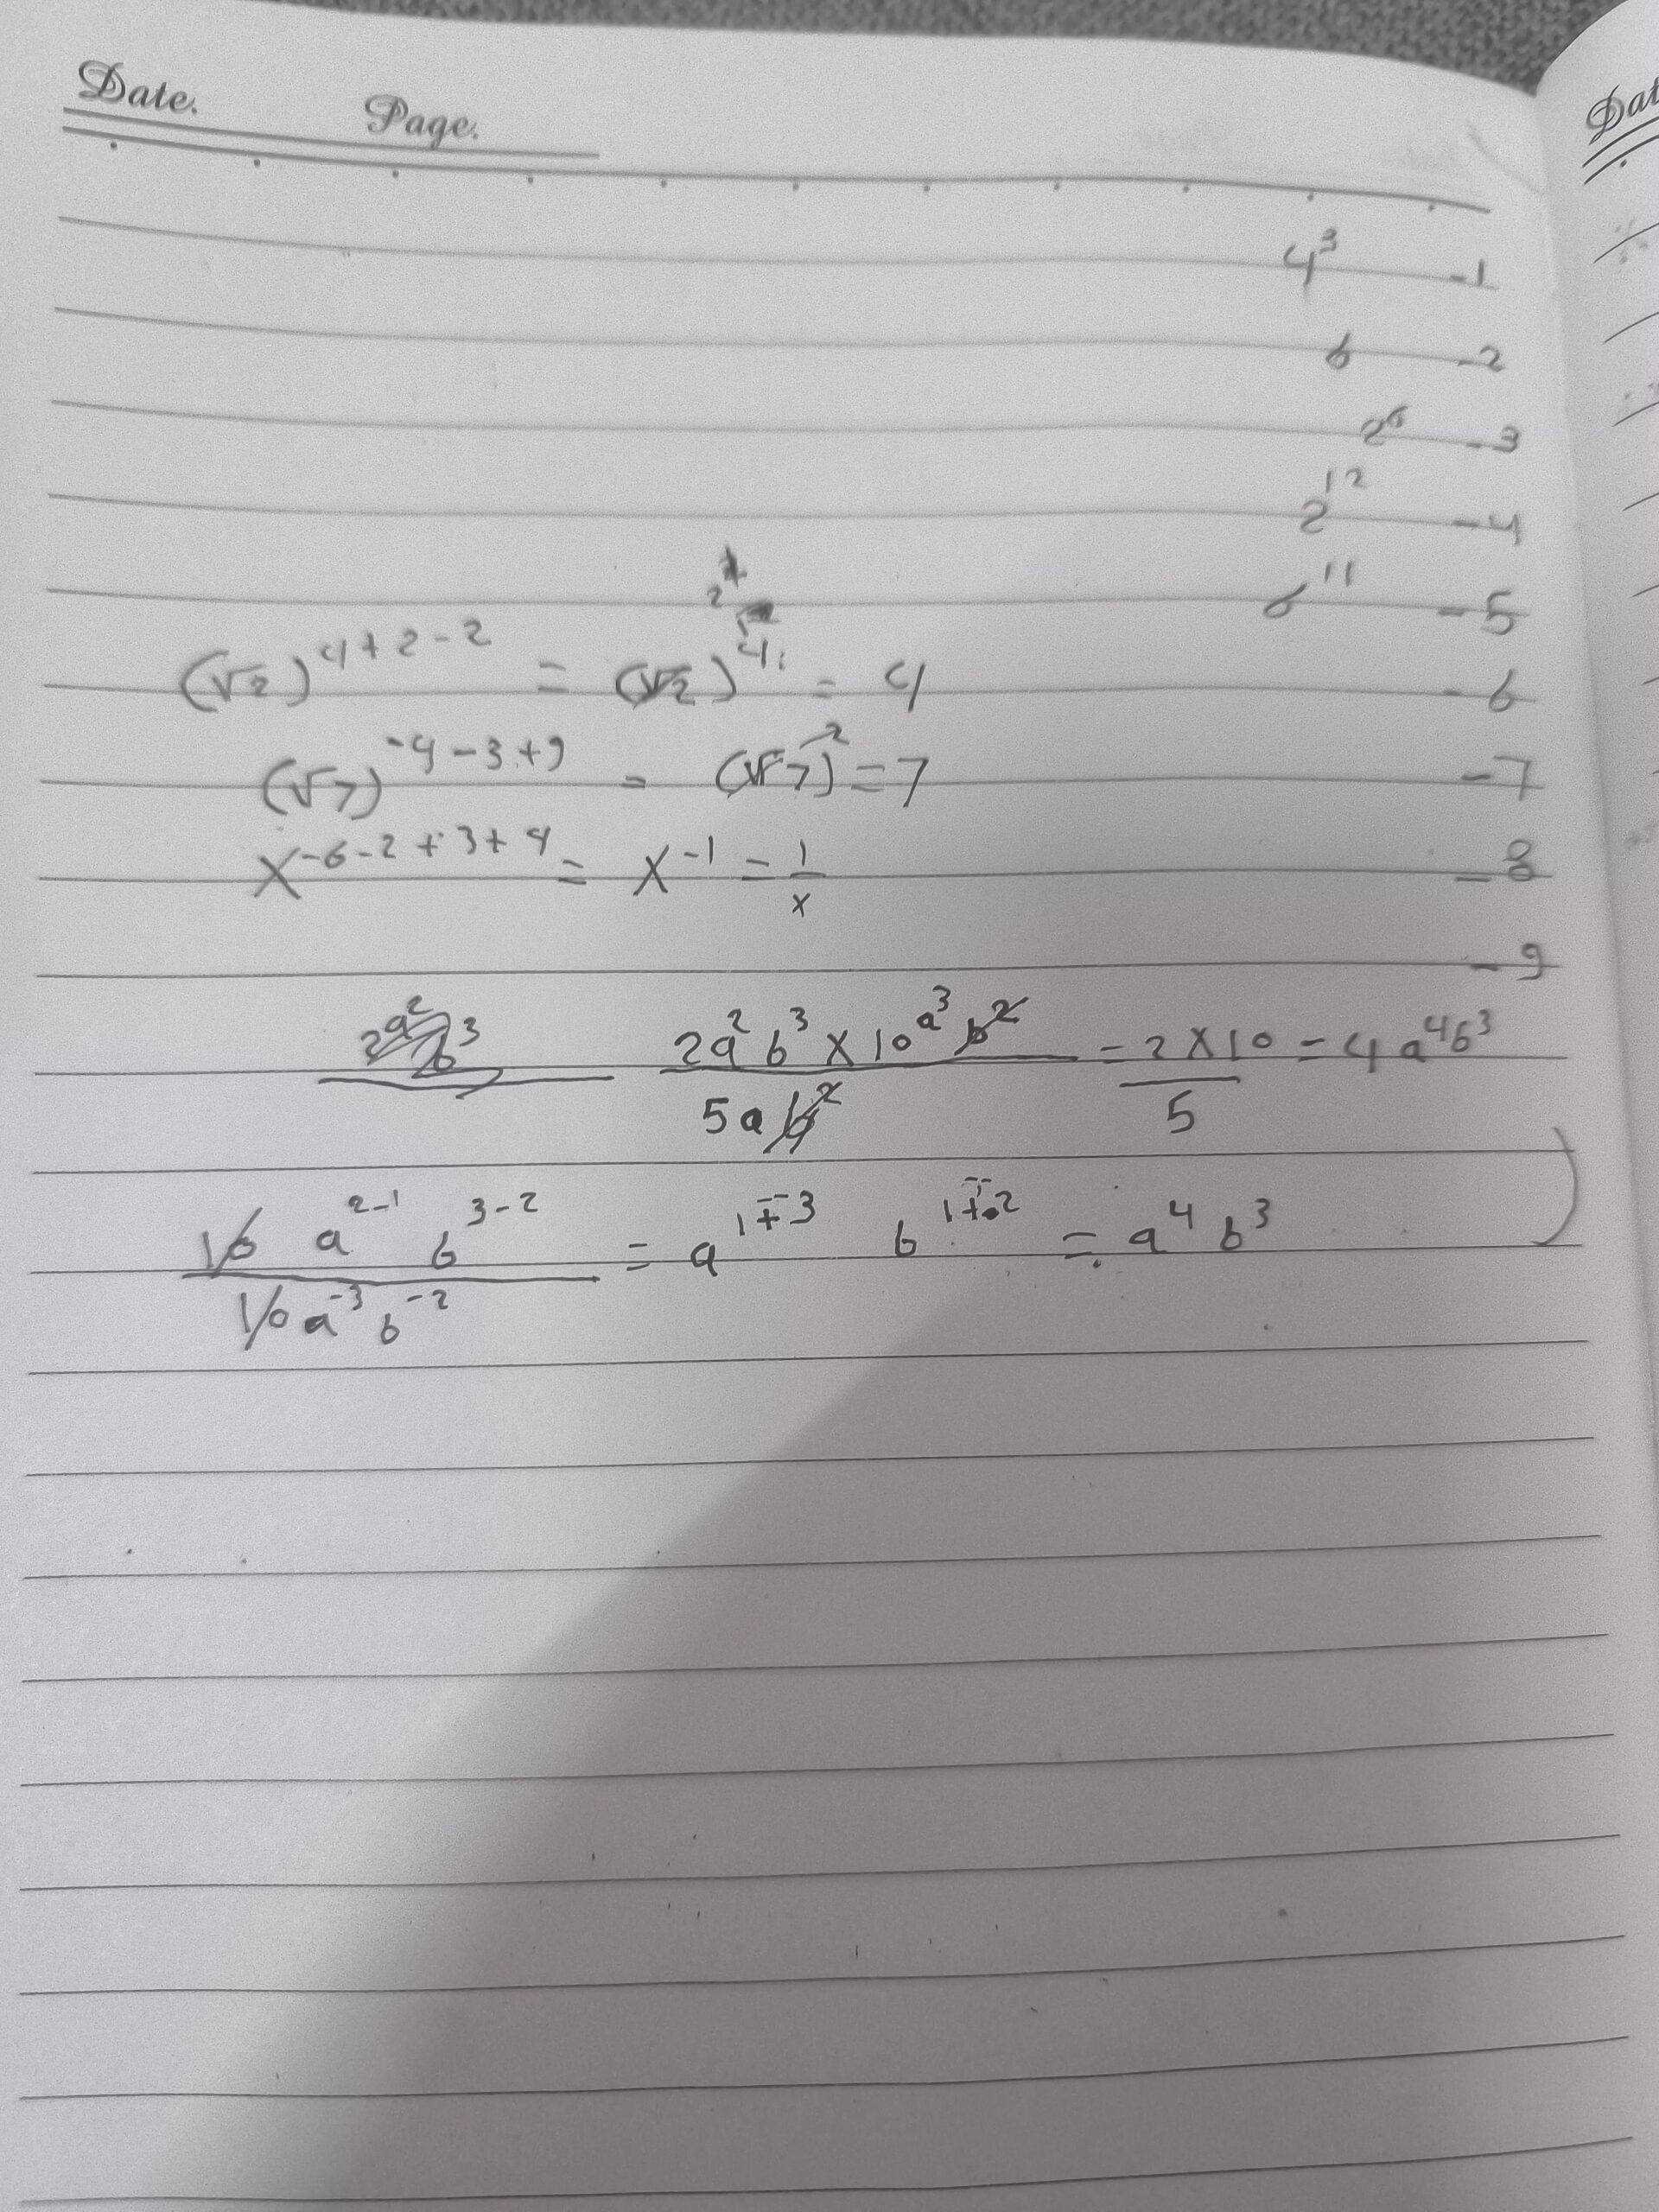 Date. Page.
Dat
4³ -1
6 -2
2⁶ -3
2¹² -4
6¹¹ -5
(√2)⁴⁺²⁻² = (√2)⁴ = 4 -6
(√7)⁻⁴⁻³⁺⁹ = (√7)² = 7 -7
x⁻⁶⁻²⁺³⁺⁴ = x⁻¹ = 1/x -8
-9
2a²b³ 2a²b³ × 10a³b² / 5ab² = 2 × 10 / 5 = 4a⁴b³
10 a²⁻¹ b³⁻² / 10a⁻³b⁻² = a¹⁺³ b¹⁺² = a⁴b³